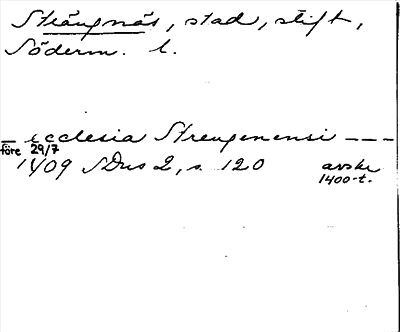 Strängnäs, stad, stift,
Söderm. l.
— ecclesia Strengenensi ---
före 29/7
1409 SDns 2, s. 120 avskr
1400-t.